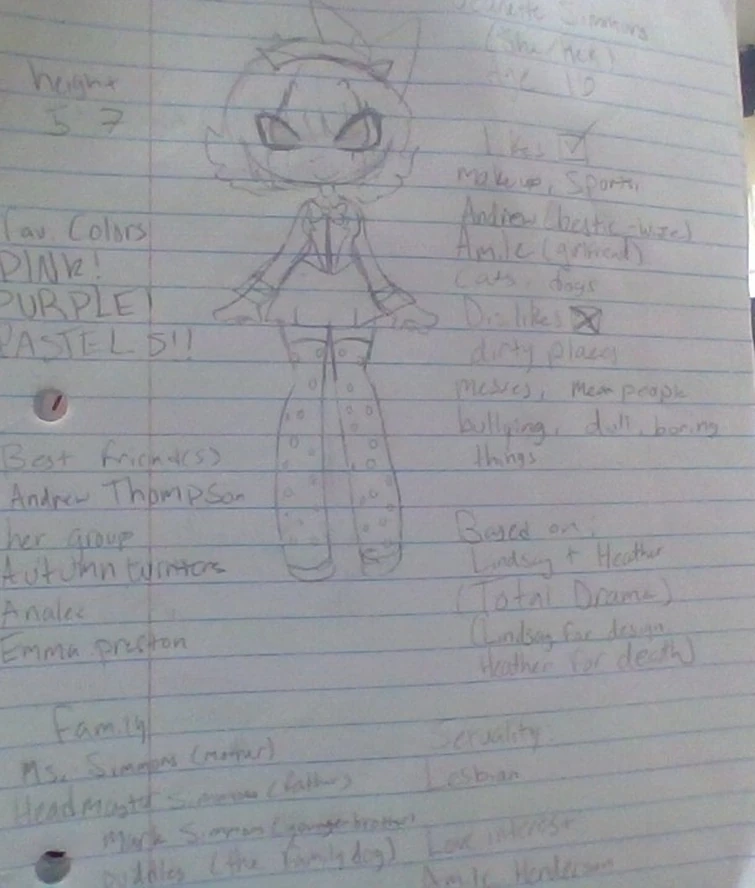 Simmons
(She/Her)
height
5 7
Likes ☑
makeup, Sports,
Andrew (bestie-wise)
Amile (girlfriend)
Cats, dogs
Fav. Colors
PINK!
PURPLE!
PASTELS!!
Dislikes ☒
dirty places
messes, mean people
bullying, dull, boring
things
Best friend(s)
Andrew Thompson
her group
Autumn Winters
Analee
Emma preston
Based on:
Lindsay + Heather
(Total Drama)
(Lindsay for design
Heather for death)
Family
Ms. Simmons (mother)
Headmaster Simmons (father)
Mark Simmons (younger brother)
puddles (the family dog)
Sexuality
Lesbian
Love interest
Amile Henderson